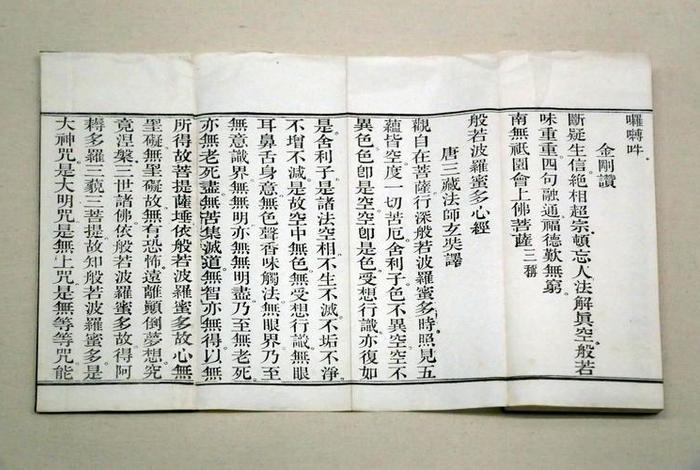 囉囀吽。
金剛讚
斷疑生信。絶相超宗。頓忘人法解眞空。般若
味重重。四句融通。福德歎無窮。
南無祇園會上佛菩薩三稱
般若波羅蜜多心經
唐三藏法師玄奘譯
觀自在菩薩。行深般若波羅蜜多時。照見五
蘊皆空。度一切苦厄。舍利子。色不異空。空不
異色。色卽是空。空卽是色。受想行識。亦復如
是。舍利子。是諸法空相。不生不滅。不垢不淨。
不增不減。是故空中無色。無受想行識。無眼
耳鼻舌身意。無色聲香味觸法。無眼界。乃至
無意識界。無無明。亦無無明盡。乃至無老死。
亦無老死盡。無苦集滅道。無智亦無得。以無
所得故。菩提薩埵。依般若波羅蜜多故。心無
罣礙。無罣礙故。無有恐怖。遠離顚倒夢想。究
竟涅槃。三世諸佛。依般若波羅蜜多故。得阿
耨多羅三藐三菩提。故知般若波羅蜜多。是
大神咒。是大明咒。是無上咒。是無等等咒。能